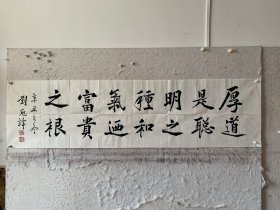 厚道
是聪
明之
種和
氣迺
富貴
之根
辛丑之冬
劉